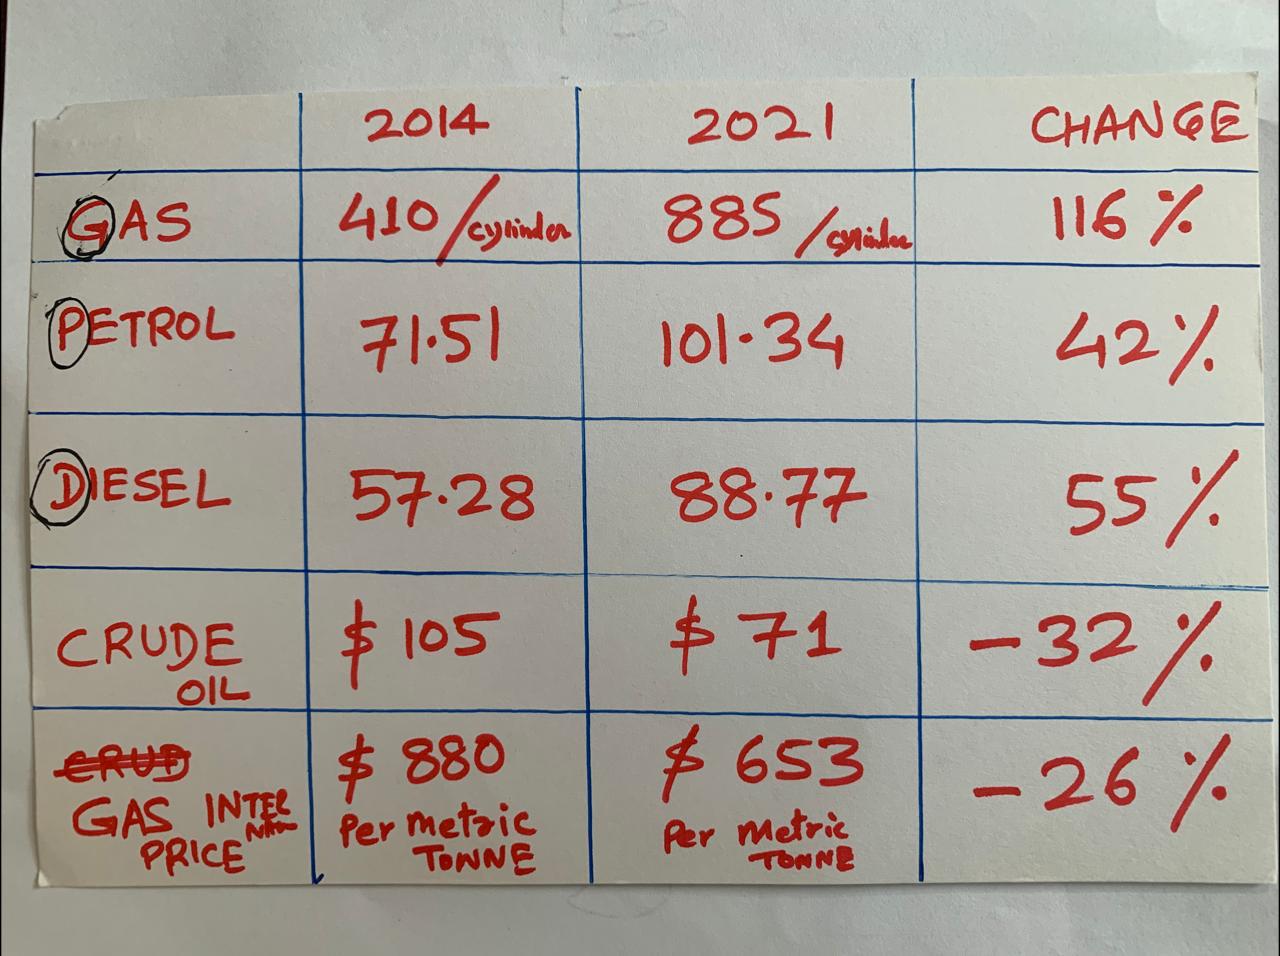 2014 2021 CHANGE
GAS 410/cylinder 885/cylinder 116%
PETROL 71.51 101.34 42%
DIESEL 57.28 88.77 55%
CRUDE $ 105 $ 71 -32%
OIL
CRUD $ 880 $ 653 -26%
GAS INTER Per Metric Per Metric
PRICE TONNE TONNE